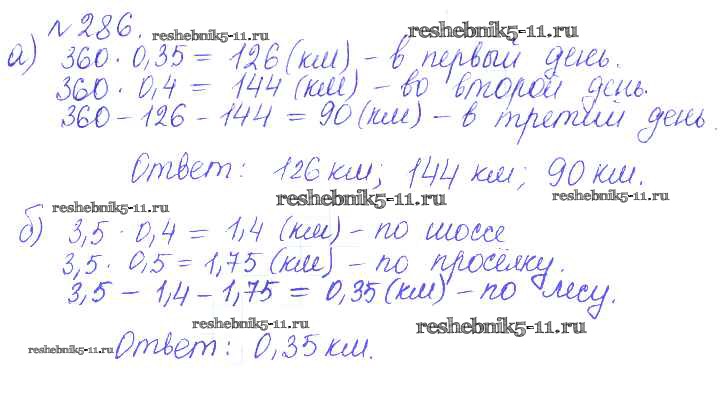 №286.
reshebnik5-11.ru
reshebnik5-11.ru
а) 360 · 0,35 = 126 (км) – в первый день.
360 · 0,4 = 144 (км) – во второй день.
360 – 126 – 144 = 90 (км) – в третий день.
Ответ: 126 км; 144 км; 90 км.
reshebnik5-11.ru
reshebnik5-11.ru
reshebnik5-11.ru
б) 3,5 · 0,4 = 1,4 (км) – по шоссе
3,5 · 0,5 = 1,75 (км) – по просёлку.
3,5 – 1,4 – 1,75 = 0,35 (км) – по лесу.
reshebnik5-11.ru
reshebnik5-11.ru
reshebnik5-11.ru
Ответ: 0,35 км.